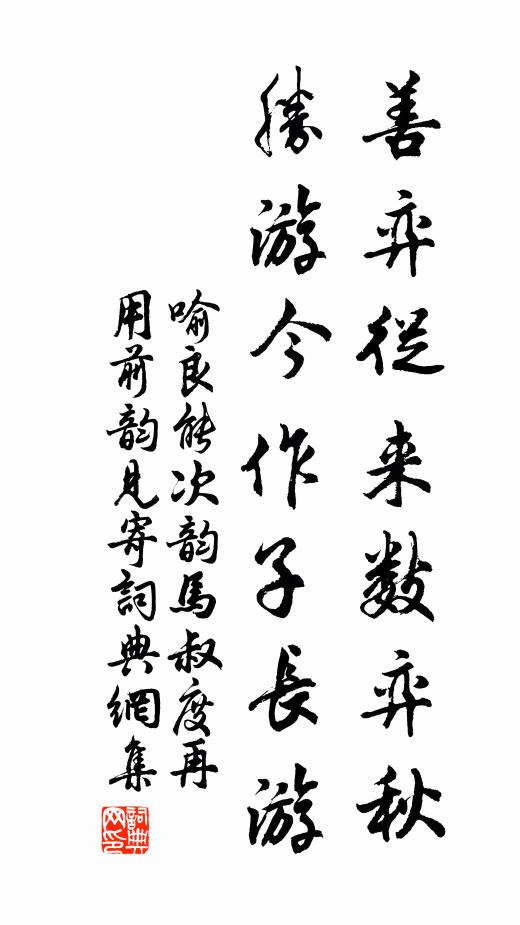 善弈從来數弈秋
勝游今作子長游
喻良能次韵馬叔度再
用前韵見寄詞典網集
詞典网印